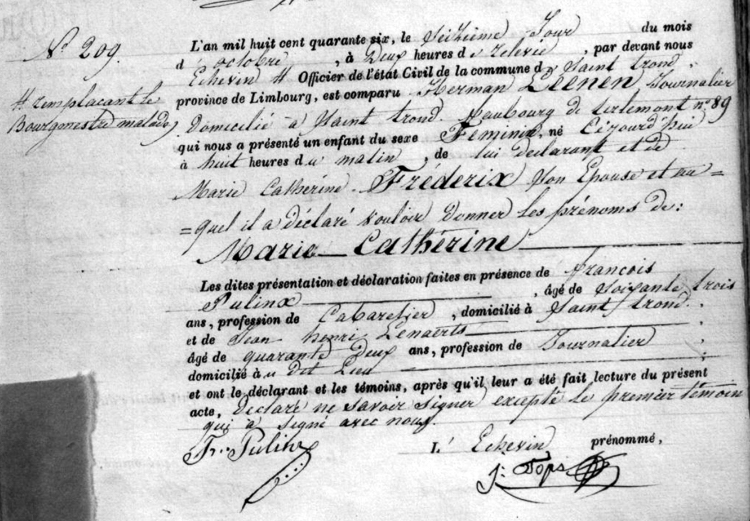 N° 209.
# remplaçant le
Bourgmestre malade
L'an mil huit cent quarante six, le Seizième Jour du mois
d'octobre, à Deux heures de relevée, par devant nous
Echevin # Officier de l'état Civil de la commune de Saint trond
province de Limbourg, est comparu Herman Lienen Journalier
Domicilié à Saint trond Faubourg de tirlemont n° 89
qui nous a présenté un enfant du sexe Féminin, né Cejourd'hui
à huit heures du matin, de lui déclarant et de
Marie Catherine Fréderix son Epouse et au=
=quel il a déclaré vouloir donner les prénoms de:
Marie Cathérine
Les dites présentation et déclaration faites en présence de françois
Pulinx, âgé de soixante trois
ans, profession de Cabaretier, domicilié à Saint trond.
et de Jean henri Lenaerts
âgé de quarante Deux ans, profession de Journalier
domicilié au dit Lieu
et ont le déclarant et les témoins, après qu'il leur a été fait lecture du présent
acte, Déclaré ne savoir signer excepté le premier témoin
qui a signé avec nous.
Fr. Pulinx
L'Echevin prénommé,